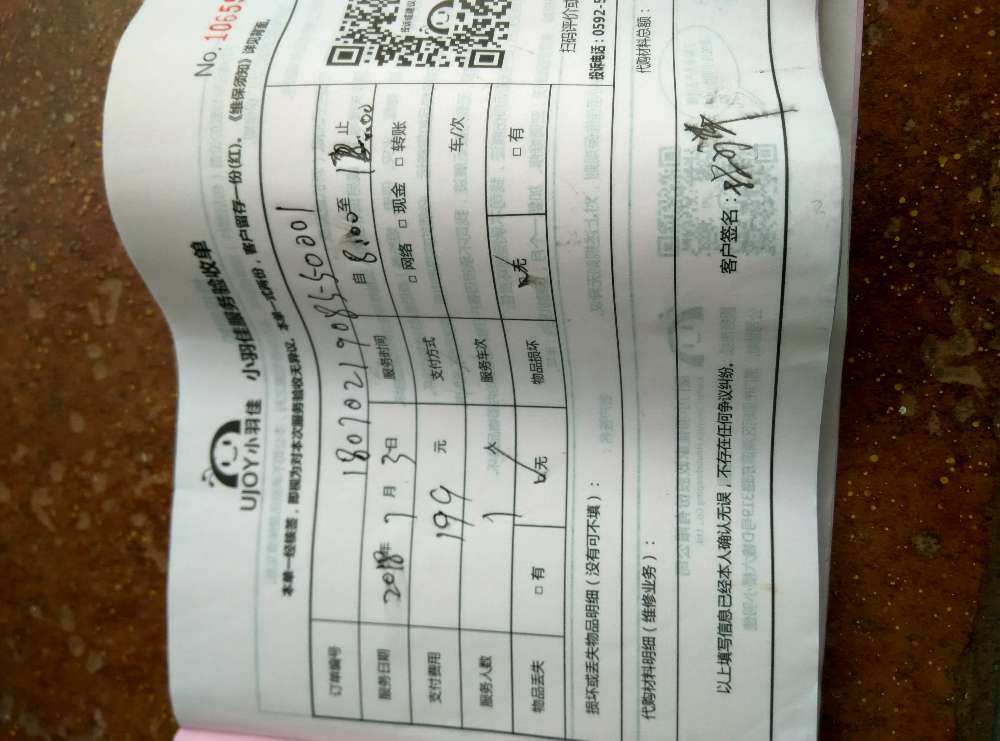 No. 10655
UJOY小羽佳 小羽佳服务验收单
本单一经核签，即视为对本次服务验收无异议。本单一式两份，客户留存一份(红)。《维保须知》详见背面。
订单编号 1807021908550001
服务日期 2018年 7月 3日 服务时间 自 8:00 至 止
支付费用 199 元 支付方式 □ 网络 □ 现金 □ 转账
服务人数 1 人 服务车次 车/次
物品丢失 □ 有 ☑无 物品损坏 ☑无 □ 有
损坏或丢失物品明细（没有可不填）：
扫码评价或
投诉电话：0592-5
代购材料明细（维修业务）： 代购材料总额：
以上填写信息已经本人确认无误，不存在任何争议纠纷。 客户签名：